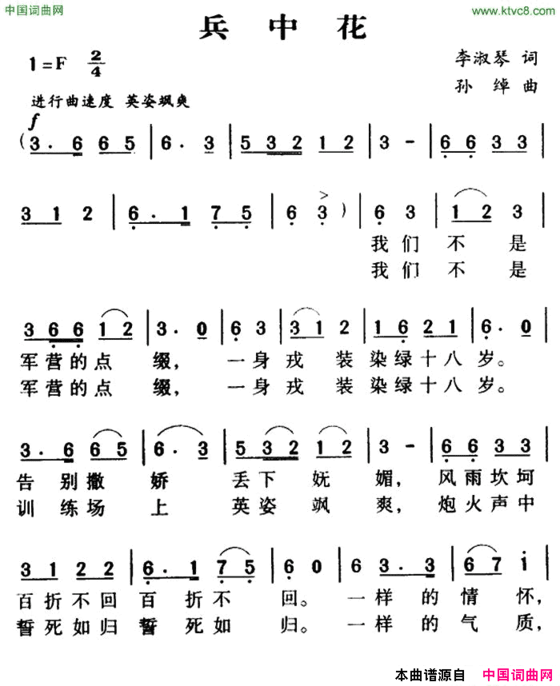 中国词曲网
www.ktvc8.com
兵中花
1=F 2/4
李淑琴 词
孙绰 曲
进行曲速度 英姿飒爽
f
(3. 6 6 5 | 6. 3 | 5 3 2 1 2 | 3 - | 6 6 3 3 |
3 1 2 | 6. 1 7 5 | 6 3 ) | 6 3 | 1 2 3 |
我们不是
我们不是
3 6 6 1 2 | 3. 0 | 6 3 | 3 1 2 | 1 6 2 1 | 6. 0 |
军营的点缀,一身戎装染绿十八岁。
军营的点缀,一身戎装染绿十八岁。
3. 6 6 5 | 6. 3 | 5 3 2 1 2 | 3 - | 6 6 3 3 |
告别撒娇丢下妩媚,风雨坎坷
训练场上英姿飒爽,炮火声中
3 1 2 2 | 6. 1 7 5 | 6 0 | 6 3. 3 | 6 7 i |
百折不回百折不回。一样的情怀,
誓死如归誓死如归。一样的气质,
本曲谱源自 中国词曲网